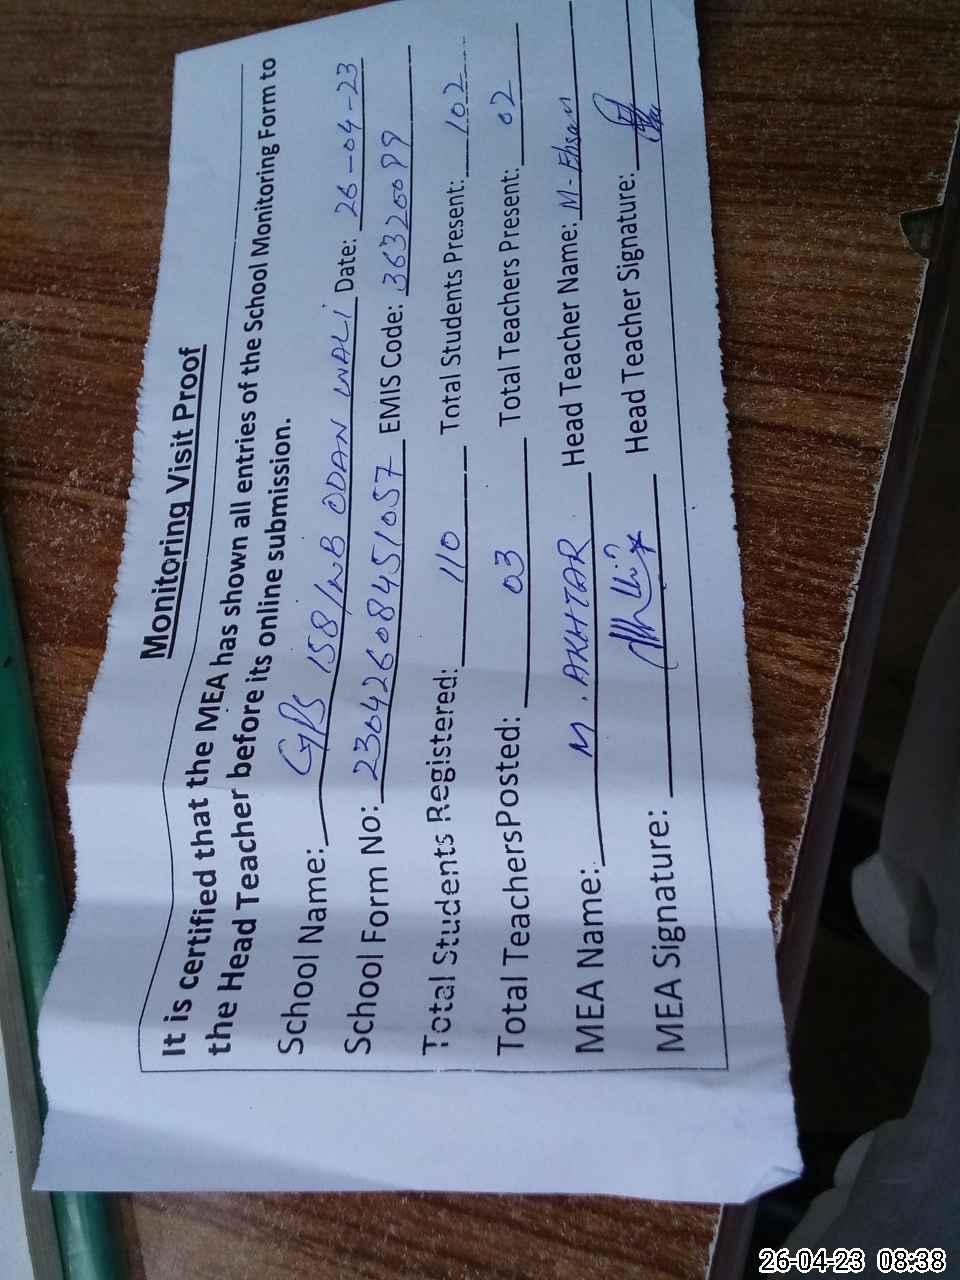 Monitoring Visit Proof
It is certified that the MEA has shown all entries of the School Monitoring Form to
the Head Teacher before its online submission.
School Name: GPS 158/WB ODAN WALI Date: 26-04-23
School Form No: 23042608451057 EMIS Code: 36320099
Total Students Registered: 110 Total Students Present: 102
Total TeachersPosted: 03 Total Teachers Present: 02
MEA Name: M. AKHTAR Head Teacher Name: M- Ehsan
MEA Signature: Head Teacher Signature:
26-04-23 08:38